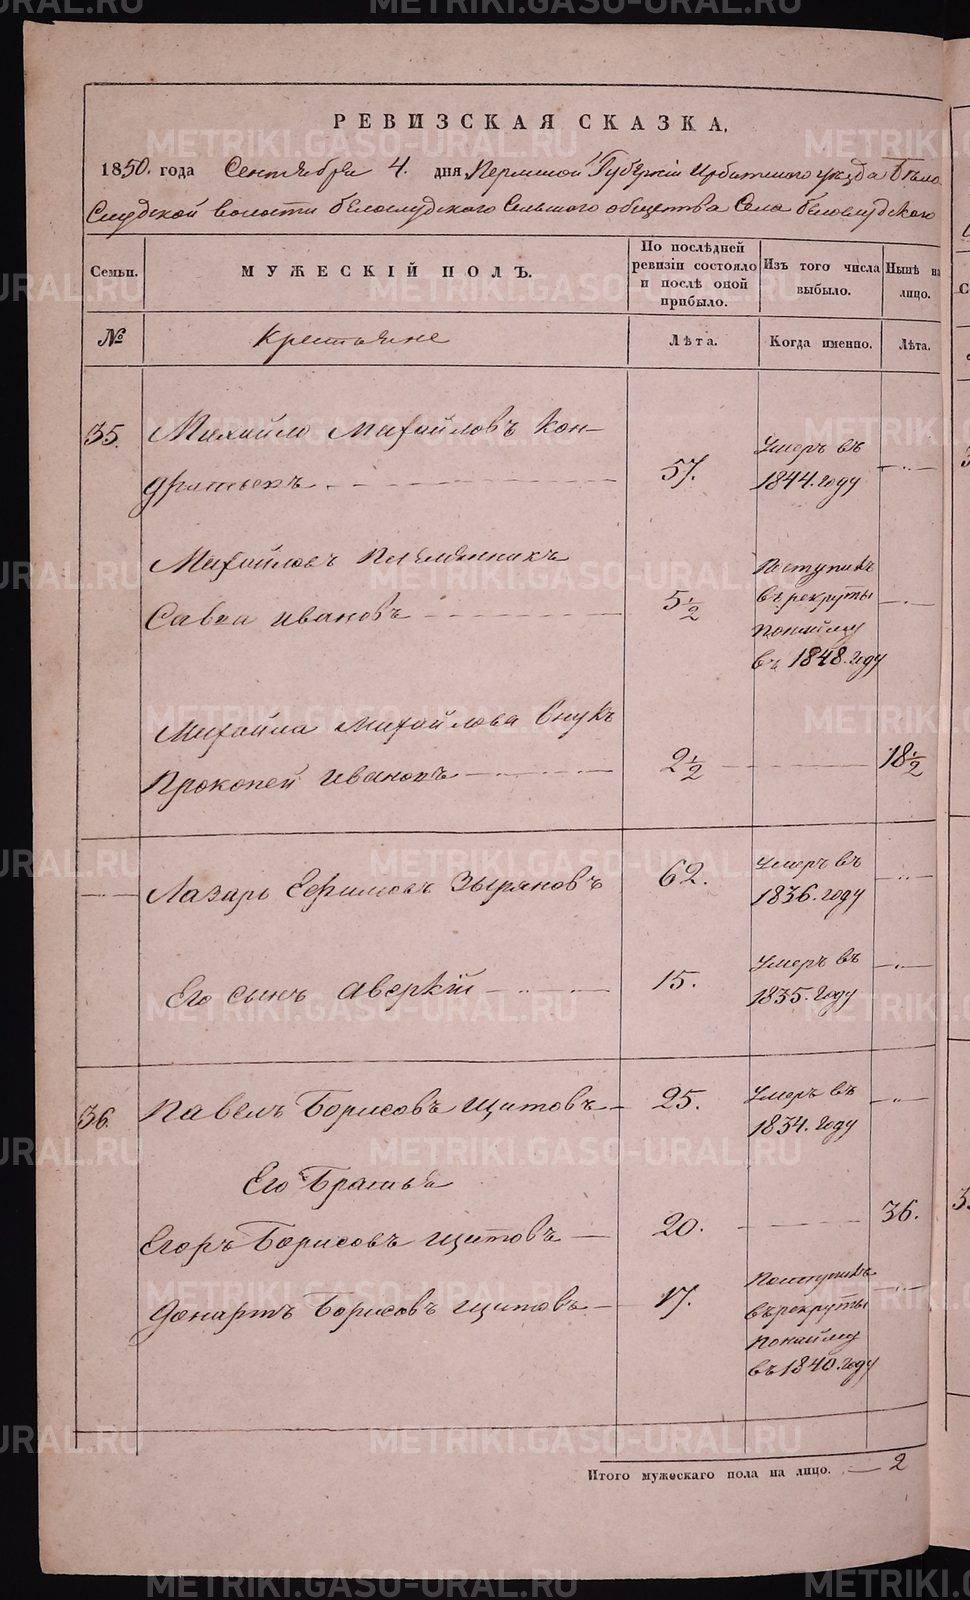 РЕВИЗСКАЯ СКАЗКА,
1850. года Сентября 4. дня, Пермской Губерніи Ирбитского уезда Бѣло
Слудской волости белослудского Сельского общества Села белослудского
Семьи. МУЖЕСКІЙ ПОЛЪ. По послѣдней ревизіи состояло и послѣ оной прибыло. Изъ того числа выбыло. Нынѣ на лицо.
№ Крестьяне Лѣта. Когда именно. Лѣта.
35. Михайло Михайловъ Кон-
дратьевъ 57. Умеръ въ 1844. году
Михайловъ племянникъ
Савва Ивановъ 5 1/2 Поступилъ въ рекруты по найму въ 1848. году
Михайла Михайлова внукъ
Прокопей Ивановъ 2 1/2 18 1/2
Лазарь Ефимовъ Зыряновъ 62. Умеръ въ 1836. году
Его сынъ Аверкій 15. Умеръ въ 1835. году
36. Павелъ Борисовъ Щитовъ 25. Умеръ въ 1834. году
Его Братья
Егоръ Борисовъ Щитовъ 20. 36.
Борисовъ Щитовъ 17. Поступилъ въ рекруты по найму въ 1840. году
Итого мужескаго пола на лицо. 2
METRIKI.GASO-URAL.RU